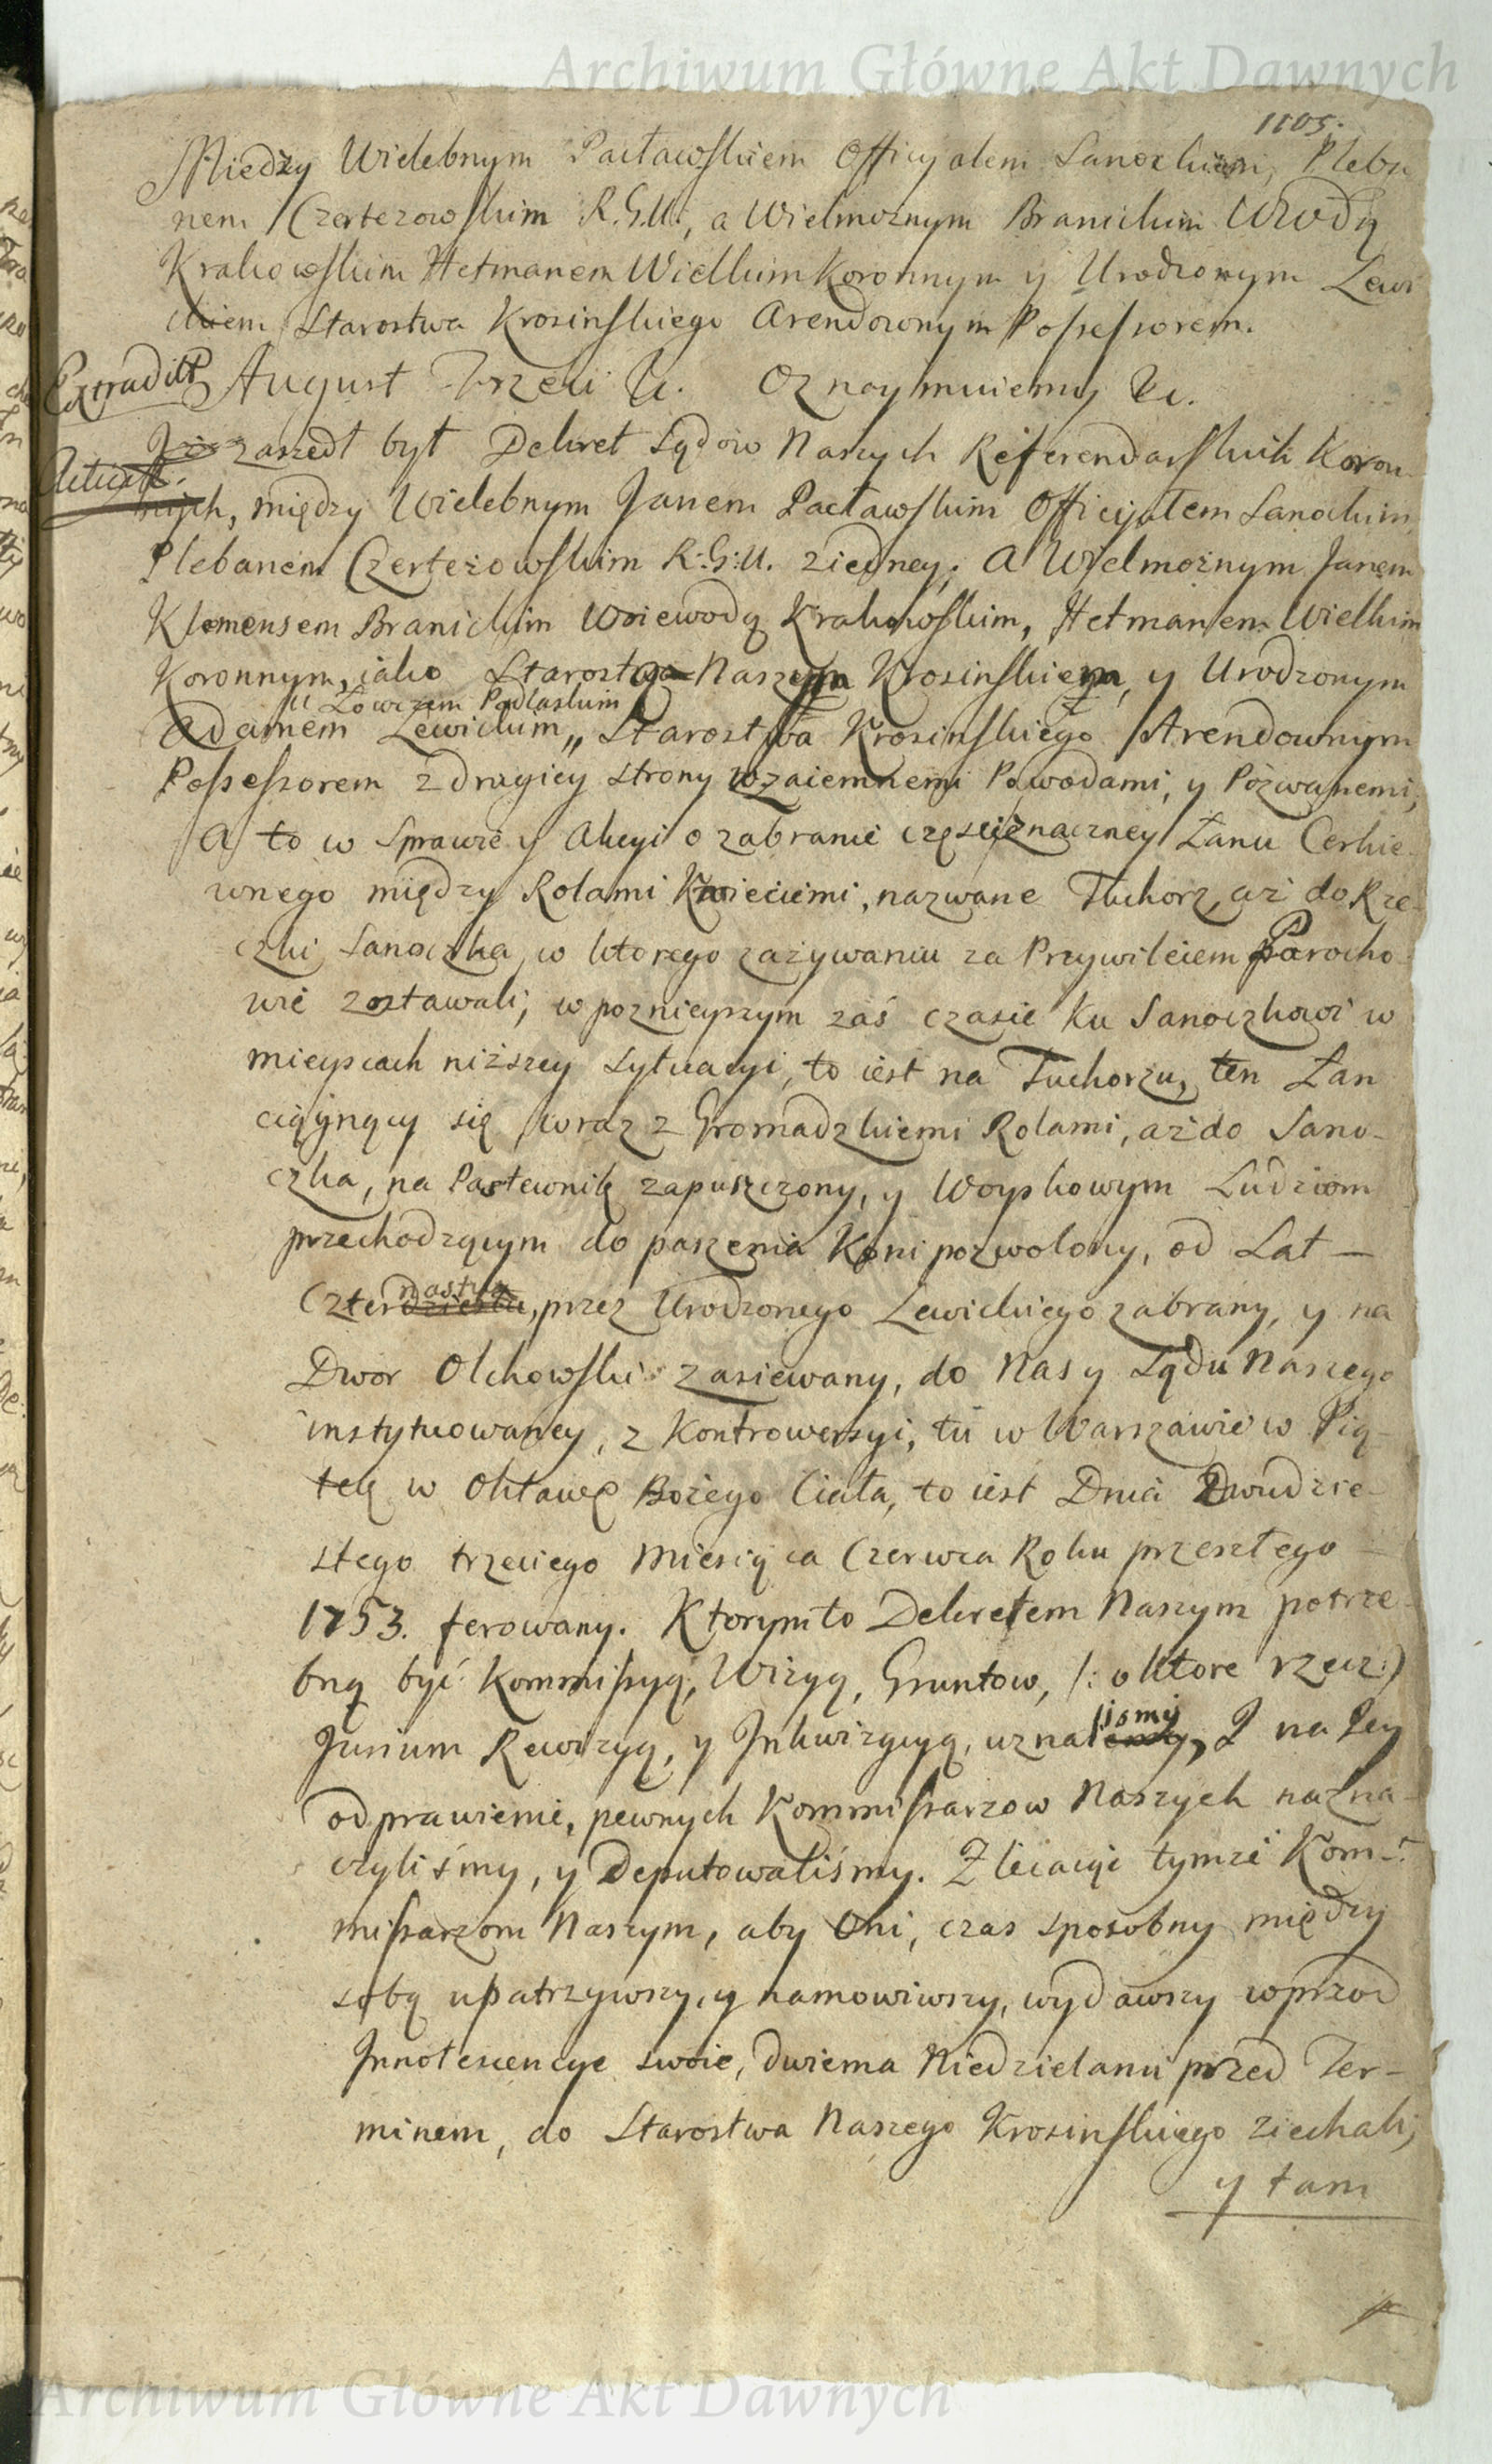 Archiwum Główne Akt Dawnych
1105.
Między Wielebnym Pacławskiem Officyałem Sanockiem, Pleba
nem Czertezowskim R.G.U., a Wielmoznym Branickim Wwodą
Krakowskim Hetmanem Wielkim Koronnym y Urodzonym Lewi
ckiem Starostwa Krosinskiego Arendownym Possessorem.
Extradit
August Trzeci &c. Oznaymuiemy &c.
Iż zaszedł był Dekret Sądow Naszych Referendarskich Koron
Acticat.
nych, między Wielebnym Janem Pacławskim Officyałem Sanockim
Plebanem Czerteżowskim R:G:U. ziedney; A Wielmożnym Janem
Klemensem Branickim Woiewodą Krakowskim, Hetmanem Wielkim
Koronnym, iako Starostą Naszym Krosinskiem, y Urodzonym
Łowczem Podlaskim
Adamem Lewickim,, Starostwa Krosinskiego Arendownym
Possessorem z drugiey strony wzaiemnemi Powodami, y Pozwanemi,
A to w Sprawie y Akcyi o zabranie częsci znaczney Łanu Cerkie-
wnego między Rolami Kmieciemi, nazwane Tuchorz, aż do Rze-
czki Sanoczka, w ktorego zażywaniu za Przywileiem Parocho-
wie zostawali; w poznieyszym zaś czasie ku Sanoczkowi w
mieyscach niższey sytuacyi, to iest na Tuchorzu, ten Łan
ciągnący się wraz z Gromadzkiemi Rolami, aż do Sano-
czka, na Pastewnik zapuszczony, y Woyskowym Ludziom
przechodzącym do paszenia Koni pozwolony, od Lat —
nastu
Czterdziestu, przez Urodzonego Lewickiego zabrany, y na
Dwor Olchowski zasiewany, do Nas y Sądu Naszego
instytuowaney, z Kontrowersyi, tu w Warszawie w Pią-
tek w Oktawę Bożego Ciała, to iest Dnia Dwudzie-
stego trzeciego Miesiąca Czerwca Roku przeszłego —
1753. ferowany. Ktorym to Dekretem Naszym potrze-
bną być Kommissyą, Wizyą, Gruntow, /: o ktore rzecz :)
lismy
Junium Rewizyą, y Inkwizycyą, uznalismy, I na Jey
odprawienie, pewnych Kommissarzow Naszych nazna-
czyliśmy, y Deputowaliśmy. Zlecaiąc tymże Kom-
missarzom Naszym, aby Oni, czas sposobny między
sobą upatrzywszy, y namowiwszy, wydawszy wprzod
Innotescencye swoie, dwiema Niedzielami przed Ter-
minem, do Starostwa Naszego Krosinskiego ziechali;
y tam
Archiwum Główne Akt Dawnych